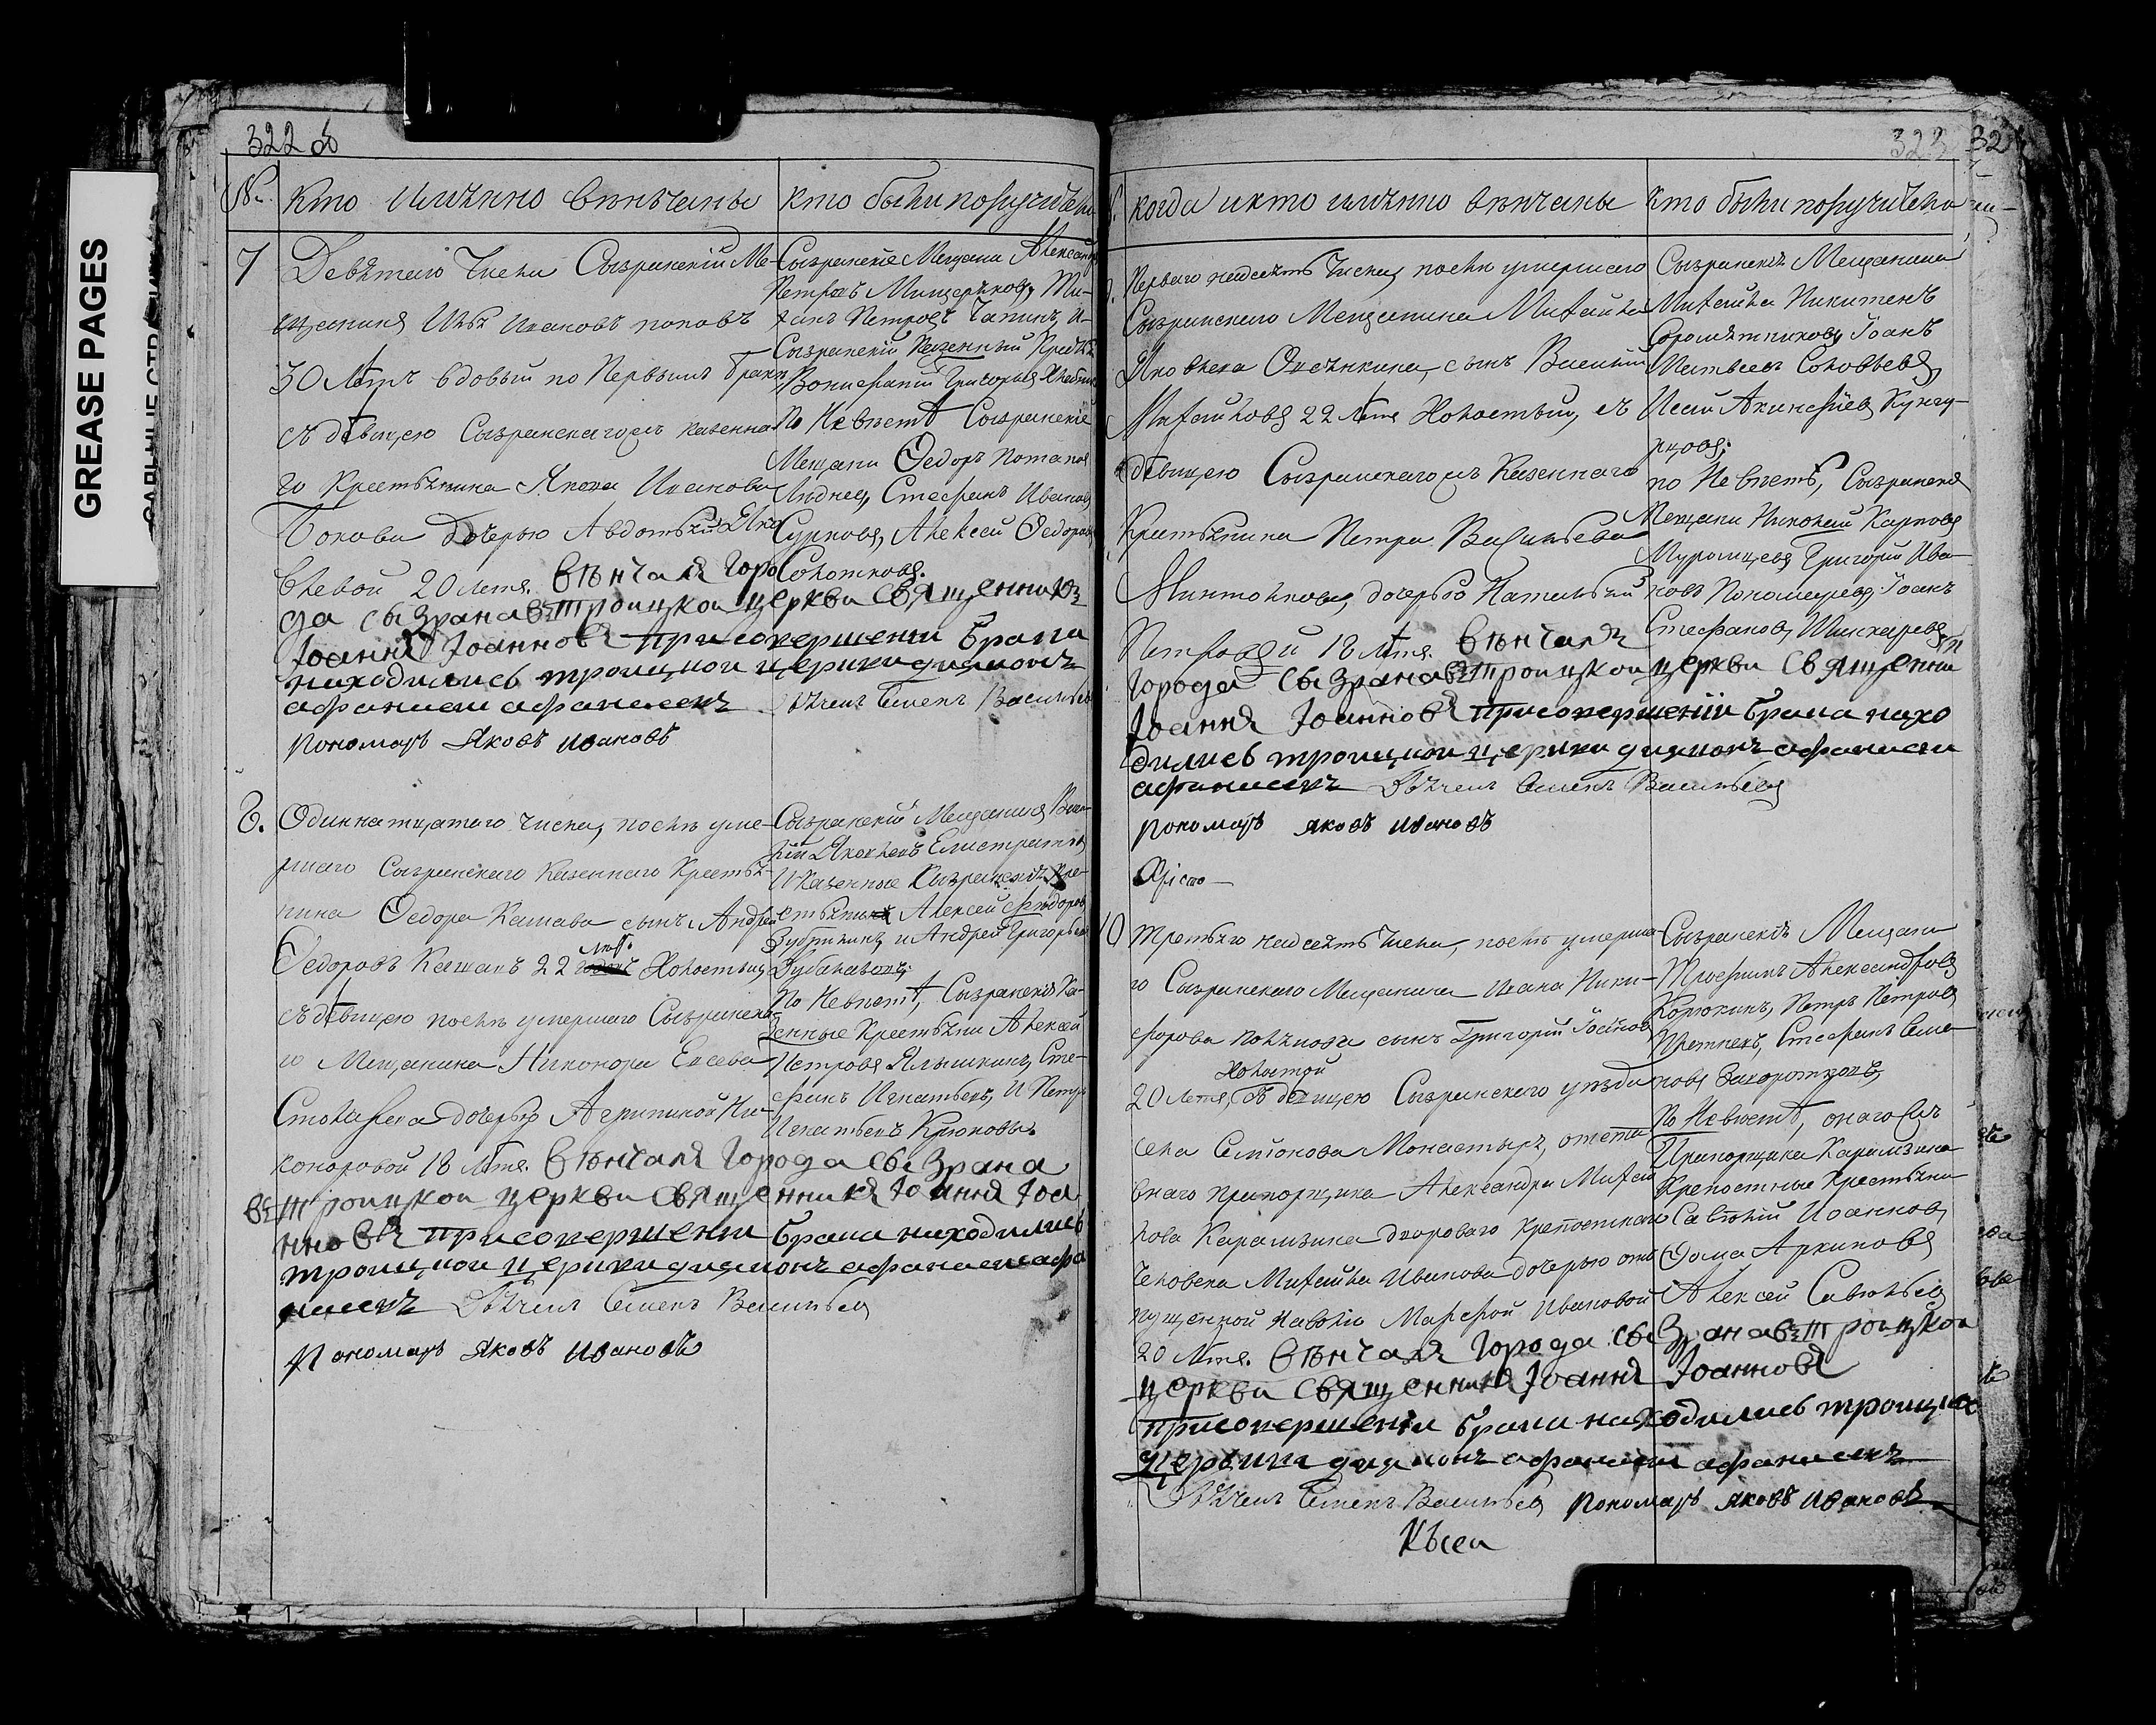 GREASE PAGES
322 об
№ Кто имѣнно вѣнчаны Кто были поручители
7 Девятаго Числа Сызранскiй Ме-
щанинъ Иванововъ поповъ
30 Летъ вдовый по Первымъ бракѣ
съ девицею Сызранскагожъ казенна-
го Крестьянина Якова Иванова
Бокова Дочерью Авдотьей Яко
влевой 20 летъ. Вѣнчалъ Горо
да Сызрана Троицкой церкви священникъ
Iоаннъ Iоанновъ при совершенiи брака
находились троицкой церкви дияконъ
афанасей афанасевъ Дьячекъ Семенъ Васильевъ
пономарь Яковъ Ивановъ
Сызранскiе Мещана Александръ
Петровъ Мищеряковъ, Ти-
ханъ Петровъ Чапинъ, и
Сызранскiй Казенный Крестья
Вонифатiй Григорьевъ
По Невѣстѣ Сызранскiе
Мещани Федоръ Потапов
Стефанъ Иванов
Сурковъ, Алексей Федоров
Солотновъ.
8. Одиннатцатого числа, послѣ уме-
ршаго Сызранскаго Казеннаго Крестья-
нина Федора Кашаева сынъ Андрей
Федоровъ Кашаевъ 22 летъ Холостый,
съ девицею послѣ умершаго Сызранска-
го Мещанина Никонора Елисева
Столярева дочерью Агрипиной Ни-
коноровой 18 летъ. Вѣнчалъ Города Сызрана
Троицкой церкви священникъ Iоаннъ Iоа
нновъ при совершенiи брака находились
троицкой церкви дияконъ афанасей афа
насевъ Дьячекъ Семенъ Васильевъ
Пономарь Яковъ Ивановъ
Сызранскiй Мещанинъ Васи-
лiй Яковлевъ Елистратов
И казенные Сызранскiе Кре-
стьяне Алексей Федоров
Зубринкинъ и Андрей Григорьев
По Невѣстѣ, Сызранскiя Ка-
зенные Крестьяни Алексей
Петровъ Ялышкинъ, Сте-
фанъ Игнатьевъ, И Петръ
Игнатьевъ Крюковы.
323
когда и кто имѣнно вѣнчаны Кто были поручители
Перваго надесять Числа, послѣ умершаго
Сызранскаго Мещанина Михайла
Яковлева Овсянкина, сынъ Василий
Михайловъ 22 летъ Холостый, съ
девицею Сызранскагожъ Казеннаго
Крестьянина Петра Васильева
дочерью Натальей
Петровой 18 летъ. Вѣнчалъ
города Сызрана Троицкой церкви священни
Iоаннъ Iоанновъ при совершенiи брака нахо
дились троицкой церкви дияконъ афанасей
афанасевъ Дьячекъ Семенъ Васильевъ
пономарь Яковъ Ивановъ
Сызранскiй Мещанинъ
Михайла Никитенъ
Сыромятниковъ, Iоанъ
Матвеевъ Соловьевъ,
Исай Акинфiевъ Кунгу-
рцовъ;
по Невѣстѣ, Сызранскiя
Мещани Николай Карповъ
Муромцевъ, Григорiй Ива-
новъ Пономаревъ, Iоанъ
Стефановъ Шинкаревъ
10 Третьяго надесять Числа, послѣ умерша-
го Сызранскаго Мещанина Ивана Ники-
форова сынъ Григорiй Iоанов
Холостой
20 летъ, съ девицею Сызранскаго уезда
села Семионова Монастырь, отста
внаго прапорщика Александра Михай
лова Карамзина двороваго крепостнаго
Человека Михайла Иванова дочерью отъ
пущенной на волю Марфой Ивановой
20 летъ. Вѣнчалъ Города Сызрана Троицкой
церкви священникъ Iоаннъ Iоанновъ
при совершенiи брака находились троицкой
церкви дияконъ афанасей афанасевъ
Дьячекъ Семенъ Васильевъ пономарь Яковъ Ивановъ
Сызранскiя Мещани
Трофимъ Александровъ
Корюкинъ, Петръ Петровъ
Стефанъ Семе-
новъ Закоротцовъ,
По Невѣстѣ, онаго
Прапорщика Карамзина
Крепостные Крестьяни
Савелiй Иоанновъ
Фома Архиповъ
Алексей Савельевъ